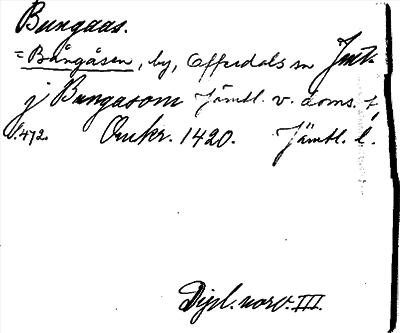 Bungaas.
= Bångåsen, by, Offerdals sn Jmt.
j Bungasom Jämtl. v. doms. f.
s. 472. Omkr. 1420. Jämtl. l.
Dipl. norv. III.